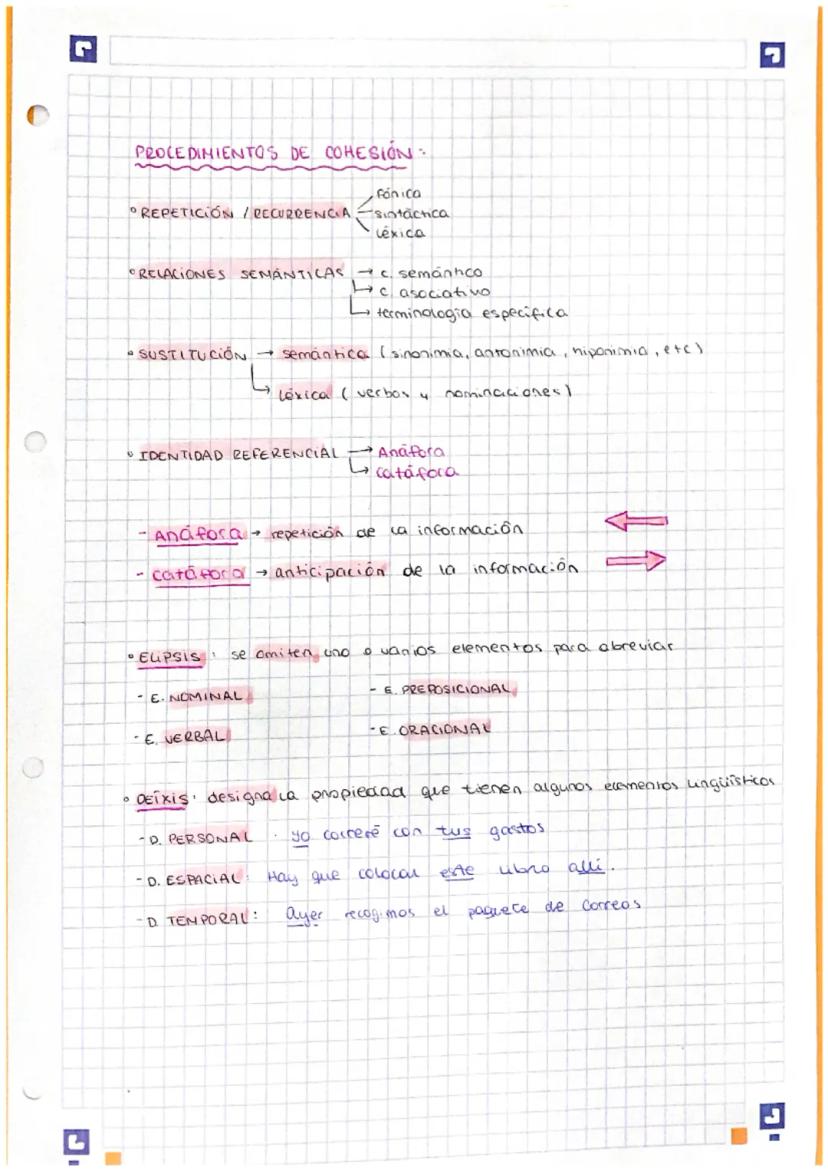 PROCEDIMIENTOS DE COHESIÓN:
fónica
° REPETICIÓN / RECURRENCIA sintáctica
léxica
° RELACIONES SEMÁNTICAS → c. semántico
↳ c. asociativo
↳ terminología específica
° SUSTITUCIÓN → semántica (sinonimia, antonimia, hiponimia, etc)
↳ léxica (verbos y nominaciones)
° IDENTIDAD REFERENCIAL → Anáfora
↳ catáfora
- Anáfora → repetición de la información
- catáfora → anticipación de la información
° ELIPSIS: se omiten uno o varios elementos para abreviar
- E. NOMINAL - E. PREPOSICIONAL
- E. VERBAL - E. ORACIONAL
° DEÍXIS: designa la propiedad que tienen algunos elementos lingüísticos
- D. PERSONAL: yo correré con tus gastos
- D. ESPACIAL: Hay que colocar este libro allí.
- D. TEMPORAL: Ayer recogimos el paquete de correos